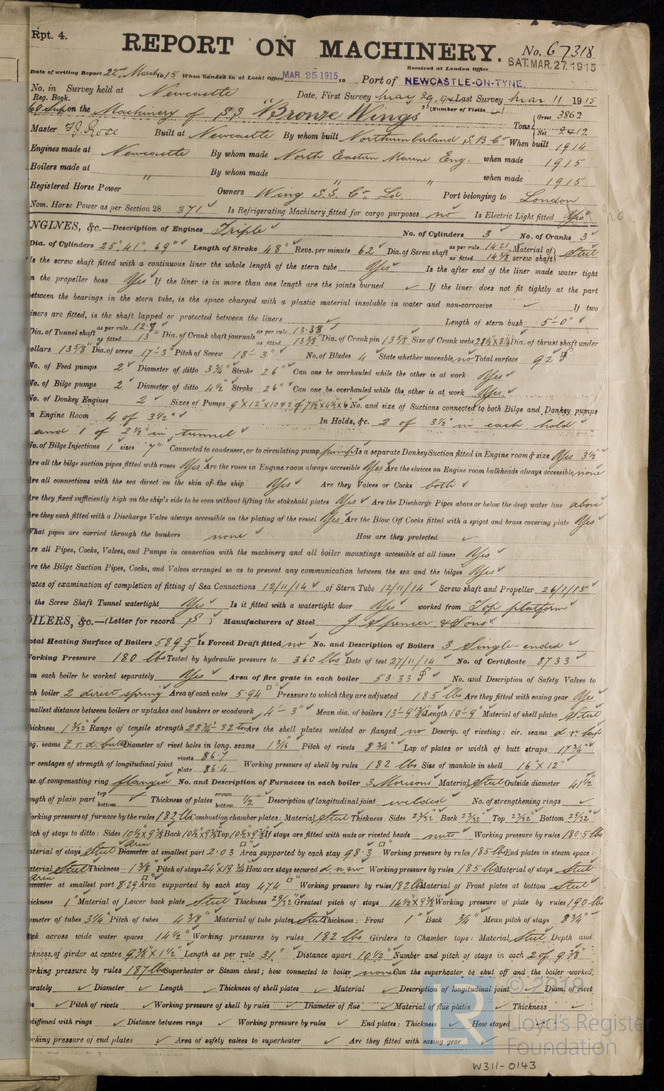 Rpt. 4.
REPORT ON MACHINERY.
No. 67318
Received at London Office SAT. MAR. 27. 1915
Date of writing Report 22nd March 1915 When handed in at Local Office MAR 25 1915 Port of NEWCASTLE-ON-TYNE
No. in Survey held at Newcastle Date, First Survey May 29. 14 Last Survey Mar 11 1915
Reg. Book.
on the Machinery of S.S. "Bronze Wings" (Number of Visits
Tons Gross 3862 Net 2412
Master Built at Newcastle By whom built Northumberland S.B. Co When built 1914
Engines made at Newcastle By whom made North Eastern Marine Eng. when made 1915
Boilers made at " By whom made " when made 1915
Registered Horse Power Owners Wing S.S. Co. Ld. Port belonging to London
Nom. Horse Power as per Section 28 371 Is Refrigerating Machinery fitted for cargo purposes no Is Electric Light fitted Yes
NGINES, &c.—Description of Engines Triple No. of Cylinders 3 No. of Cranks 3
Dia. of Cylinders 25" 41" 69" Length of Stroke 48" Revs. per minute 62 Dia. of Screw shaft as per rule 14.21 as fitted 14 3/4 Material of screw shaft Steel
Is the screw shaft fitted with a continuous liner the whole length of the stern tube Yes Is the after end of the liner made water tight
in the propeller boss Yes If the liner is in more than one length are the joints burned If the liner does not fit tightly at the part
between the bearings in the stern tube, is the space charged with a plastic material insoluble in water and non-corrosive If two
liners are fitted, is the shaft lapped or protected between the liners Length of stern bush 5-0"
Dia. of Tunnel shaft as per rule 12.7 as fitted 13" Dia. of Crank shaft journals as per rule 13.38 as fitted 13 5/8 Dia. of Crank pin 13 5/8 Size of Crank webs Dia. of thrust shaft under
ollars 13 5/8 Dia. of screw 17-3" Pitch of Screw 18-3" No. of Blades 4 State whether moveable no Total surface 92
No. of Feed pumps 2 Diameter of ditto 3 3/4 Stroke 26" Can one be overhauled while the other is at work Yes
No. of Bilge pumps 2 Diameter of ditto 4 1/2 Stroke 26" Can one be overhauled while the other is at work Yes
No. of Donkey Engines 2 Sizes of Pumps No. and size of Suctions connected to both Bilge and Donkey pumps
In Engine Room 4 of 3 1/2" In Holds, &c. 2 of 3 1/2 in each hold
and 1 of 2 1/2 in tunnel
No. of Bilge Injections 1 sizes 7" Connected to condenser, or to circulating pump pump Is a separate Donkey Suction fitted in Engine room & size Yes 3 1/2
Are all the bilge suction pipes fitted with roses Yes Are the roses in Engine room always accessible Yes Are the sluices on Engine room bulkheads always accessible none
Are all connections with the sea direct on the skin of the ship Yes Are they Valves or Cocks both
Are they fixed sufficiently high on the ship's side to be seen without lifting the stokehold plates Yes Are the Discharge Pipes above or below the deep water line above
Are they each fitted with a Discharge Valve always accessible on the plating of the vessel Yes Are the Blow Off Cocks fitted with a spigot and brass covering plate Yes
What pipes are carried through the bunkers none How are they protected
Are all Pipes, Cocks, Valves, and Pumps in connection with the machinery and all boiler mountings accessible at all times Yes
Are the Bilge Suction Pipes, Cocks, and Valves arranged so as to prevent any communication between the sea and the bilges Yes
Dates of examination of completion of fitting of Sea Connections 12/11/14 of Stern Tube 12/11/14 Screw shaft and Propeller 26/1/15
the Screw Shaft Tunnel watertight Yes Is it fitted with a watertight door Yes worked from Top platform
OILERS, &c.—(Letter for record S) Manufacturers of Steel J. Spencer & Sons
otal Heating Surface of Boilers 5895 Is Forced Draft fitted no No. and Description of Boilers 3 Single ended
orking Pressure 180 lbs Tested by hydraulic pressure to 360 lbs Date of test 27/11/14 No. of Certificate 8733
an each boiler be worked separately Yes Area of fire grate in each boiler 53.33 No. and Description of Safety Valves to
ch boiler 2 direct spring Area of each valve 5.94 Pressure to which they are adjusted 185 lbs Are they fitted with easing gear Yes
mallest distance between boilers or uptakes and bunkers or woodwork 4-3" Mean dia. of boilers 13-9 3/4 Length 10-9" Material of shell plates Steel
hickness 1 3/32 Range of tensile strength 28 1/2-32 tons Are the shell plates welded or flanged no Descrip. of riveting: cir. seams d.r. lap
ng. seams t.r.d. butts Diameter of rivet holes in long. seams 1 3/16 Pitch of rivets 8 3/4 Lap of plates or width of butt straps 17 3/4
er centages of strength of longitudinal joint rivets 86.7 plate 86.4 Working pressure of shell by rules 182 lbs Size of manhole in shell 16" x 12"
ze of compensating ring flanged No. and Description of Furnaces in each boiler 3 Morisons Material Steel Outside diameter 41 1/2
ngth of plain part top bottom Thickness of plates crown bottom 1/2 Description of longitudinal joint welded No. of strengthening rings
orking pressure of furnace by the rules 182 lbs Combustion chamber plates: Material Steel Thickness: Sides 21/32 Back 21/32 Top 21/32 Bottom 21/32
tch of stays to ditto: Sides Back Top If stays are fitted with nuts or riveted heads nuts Working pressure by rules 180.5 lbs
aterial of stays Steel area Diameter at smallest part 2.03 Area supported by each stay 98.3 Working pressure by rules 185 lbs End plates in steam space:
aterial Steel Thickness 1 3/8 Pitch of stays How are stays secured d.n.w. Working pressure by rules 185 lbs Material of stays Steel
area iameter at smallest part 8.29 Area supported by each stay 474 Working pressure by rules 182 lbs Material of Front plates at bottom Steel
ickness 1" Material of Lower back plate Steel Thickness 29/32 Greatest pitch of stays Working pressure of plate by rules 190 lbs
ameter of tubes 3 1/4 Pitch of tubes 4 3/8" Material of tube plates Steel Thickness: Front 1" Back 3/4" Mean pitch of stays 8 3/4
itch across wide water spaces 14 1/2" Working pressures by rules 182 lbs Girders to Chamber tops: Material Steel Depth and
ickness of girder at centre 9 3/8 x 1 1/2" Length as per rule 31" Distance apart 10 1/2 Number and pitch of stays in each 2 of 9 3/8"
orking pressure by rules 187 lbs Superheater or Steam chest; how connected to boiler none Can the superheater be shut off and the boiler worked
arately Diameter Length Thickness of shell plates Material Description of longitudinal joint Diam. of rivet
Pitch of rivets Working pressure of shell by rules Diameter of flue Material of flue plates Thickness
stiffened with rings Distance between rings Working pressure by rules End plates: Thickness How stayed
orking pressure of end plates Area of safety valves to superheater Are they fitted with easing gear
Lloyd's Register
Foundation
W311-0143